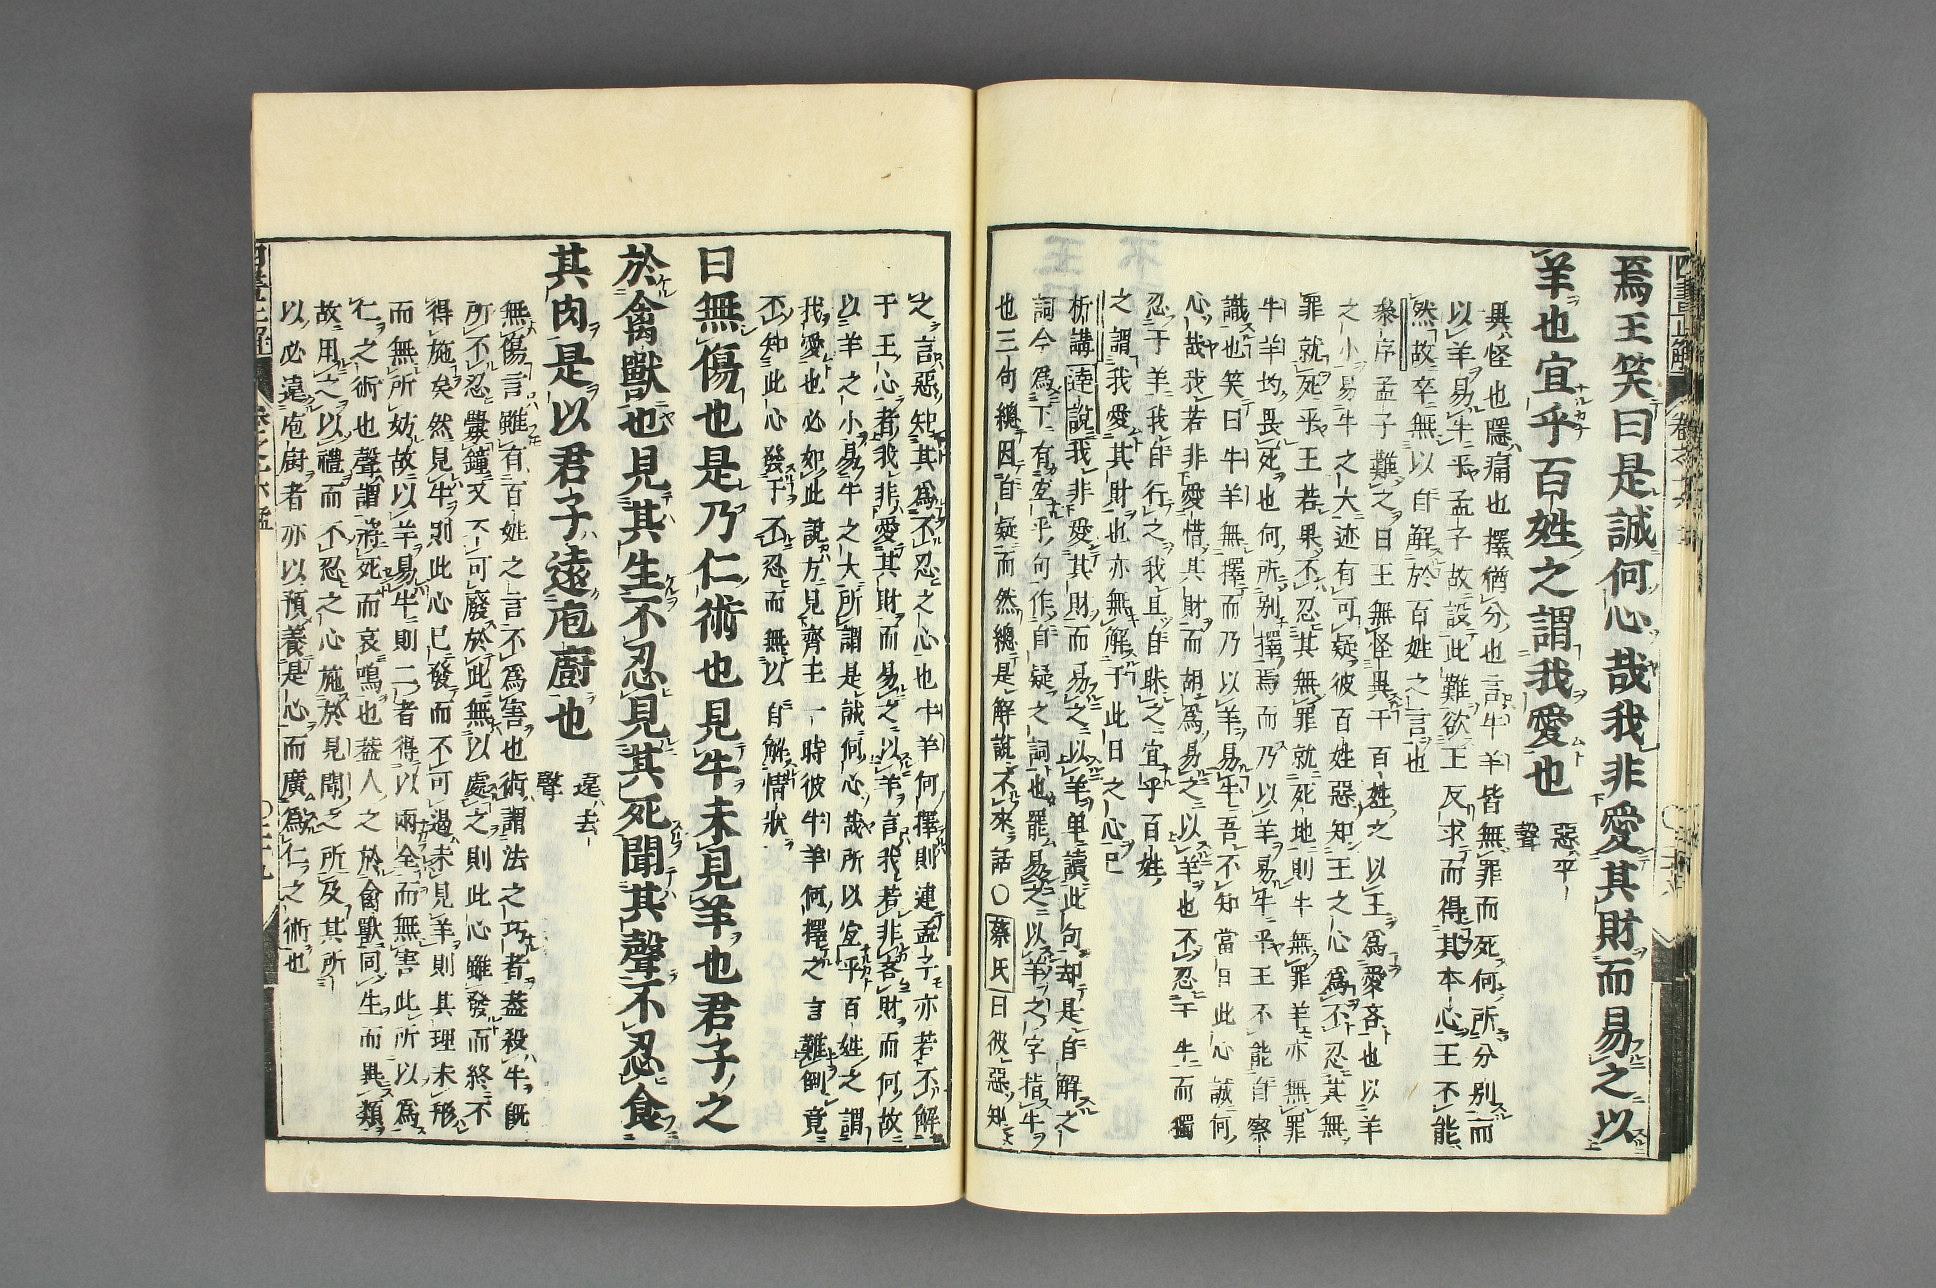 焉王笑曰是誠何心哉我非愛其財而易之以
羊也宜乎百姓之謂我愛也 惡平聲
異怪也隱痛也擇猶分也言牛羊皆無罪而死何所分別而
以羊易牛乎孟子故設此難欲王反求而得其本心王不能
然故卒無以自解於百姓之言也
泰序孟子難之曰王無怪異于百姓之以王為愛吝也以羊
之小易牛之大迹有可疑彼百姓惡知王之心為不忍其無
罪就死乎王若果不忍其無罪就死地則牛無罪羊亦無罪
牛羊均畏死也何所別擇焉而乃以羊易牛乎王不能自察
識也笑曰牛羊無擇而乃以羊易牛吾不知當日此心誠何
心哉我若非愛惜其財而胡為易之以羊也不忍于牛而獨
忍于羊我自行之我且自昧之宜乎百姓
之謂我愛其財也亦無解于此日之心已
析講 達說我非愛其財而易之以羊單讀此句却是自解之
詞今為下有宜乎句作自疑之詞也罷易之以羊之字指牛
也三句總因自疑而然總是解說不來話〇蔡氏曰彼惡知
之言惡知其為不忍之心也牛羊何擇則連孟子亦若不解
于王心者我非愛其財而易之以羊言我若非吝財而何故
以羊之小易牛之大所謂是誠何心哉所以宜乎百姓之謂
我愛也必如此說方見齊王一時彼牛羊何擇之言難倒竟
不知此心發于不忍而無以自解情狀
曰無傷也是乃仁術也見牛未見羊也君子之
於禽獸也見其生不忍見其死聞其聲不忍食
其肉是以君子遠庖廚也 遠去聲
無傷言雖有百姓之言不為害也術謂法之巧者蓋殺牛既
所不忍釁鐘又不可廢於此無以處之則此心雖發而終不
得施矣然見牛則此心已發而不可遏未見羊則其理未形
而無所妨故以羊易牛則二者得以兩全而無害此所以為
仁之術也聲謂將死而哀鳴也蓋人之於禽獸同生而異類
故用之以禮而不忍之心施於見聞之所及其所
以必遠庖廚者亦以預養是心而廣為仁之術也